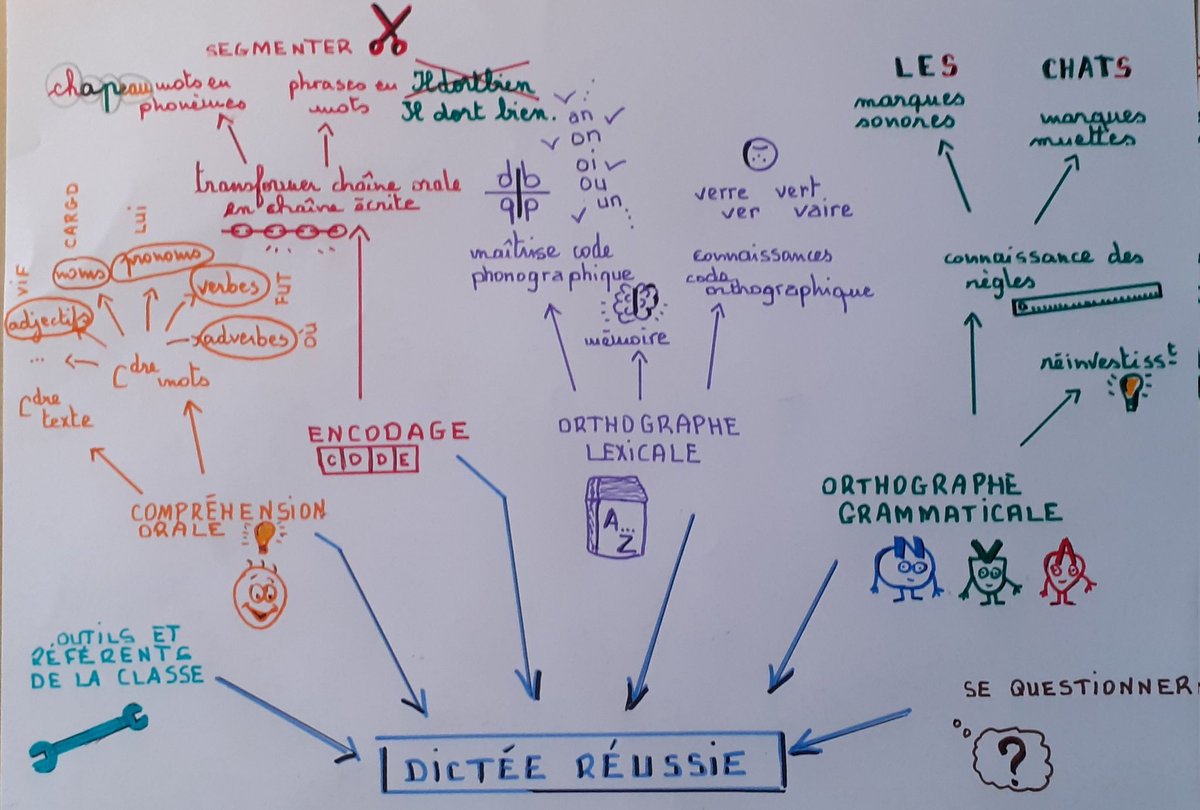 SEGMENTER
chapeau mots en phonèmes
phrases en mots
Il dortbien
Il dort bien.
transformer chaîne orale
en chaîne écrite
ENCODAGE
CODE
VIF
CARGO
LUI
FUT
OÙ
adjectifs
noms
pronoms
verbes
adverbes
...
Cdre mots
Cdre texte
COMPRÉHENSION
ORALE
an
on
oi
ou
un
d b
q p
maîtrise code
phonographique
mémoire
verre vert
ver vaire
connaissances
code
orthographique
ORTHOGRAPHE
LEXICALE
A...
Z
LES
marques
sonores
CHATS
marques
muettes
connaissance des
règles
réinvestisst
ORTHOGRAPHE
GRAMMATICALE
N
V
A
OUTILS ET
RÉFÉRENTS
DE LA CLASSE
SE QUESTIONNER
?
DICTÉE RÉUSSIE